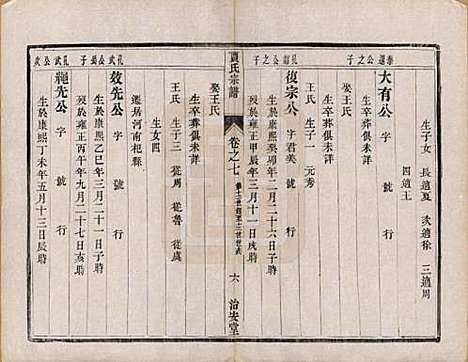 泰運公之子
生子女 長適夏 次適徐 三適周
四適王
大有公 字 號 行
生卒葬俱未詳
娶王氏
生卒葬俱未詳
王氏 生子一 元秀
孔昭公之子
復宗公 字君美 號 行
生於康熙癸卯年二月二十六日子時
歿於雍正甲辰年三月十一日戌時
生卒葬俱未詳
娶王氏
賈氏宗譜
卷之七
六 治安堂
王氏 生子三 從周 從魯 從虞
生女四
遷居河南杞縣
孔武公長子
效先公 字 號 行
生於康熙乙巳年三月二十一日子時
歿於雍正丙午年九月二十七日亥時
孔武公次子
繩先公 字 號 行
生於康熙丁未年五月十三日辰時